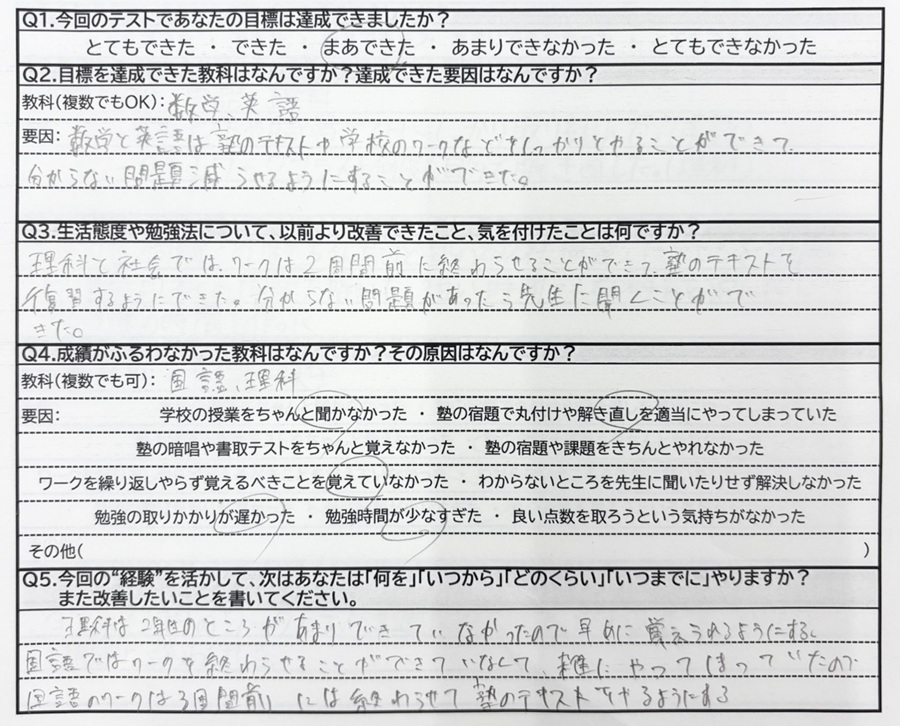 Q1.今回のテストであなたの目標は達成できましたか？
とてもできた ・ できた ・ まあできた ・ あまりできなかった ・ とてもできなかった
Q2.目標を達成できた教科はなんですか？達成できた要因はなんですか？
教科(複数でもOK)：数学、英語
要因：数学と英語は塾のテキストや学校のワークなどをしっかりとやることができて、
分からない問題減らせるようにすることができた。
Q3.生活態度や勉強法について、以前より改善できたこと、気を付けたことは何ですか？
理科と社会では、ワークは2週間前に終わらせることができて、塾のテキストを
復習するようにできた。分からない問題があったら先生に聞くことがで
きた。
Q4.成績がふるわなかった教科はなんですか？その原因はなんですか？
教科(複数でも可)：国語、理科
要因： 学校の授業をちゃんと聞かなかった ・ 塾の宿題で丸付けや解き直しを適当にやってしまっていた
塾の暗唱や書取テストをちゃんと覚えなかった ・ 塾の宿題や課題をきちんとやれなかった
ワークを繰り返しやらず覚えるべきことを覚えていなかった ・ わからないところを先生に聞いたりせず解決しなかった
勉強の取りかかりが遅かった ・ 勉強時間が少なすぎた ・ 良い点数を取ろうという気持ちがなかった
その他( )
Q5.今回の“経験”を活かして、次はあなたは「何を」「いつから」「どのくらい」「いつまでに」やりますか？
また改善したいことを書いてください。
理科は2年生のところがあまりできていなかったので早めに覚えられるようにする。
国語ではワークを終わらせることができていなくて、雑にやってしまっていたので
国語のワークは3週間前には終わらせて塾のテキストをやるようにする